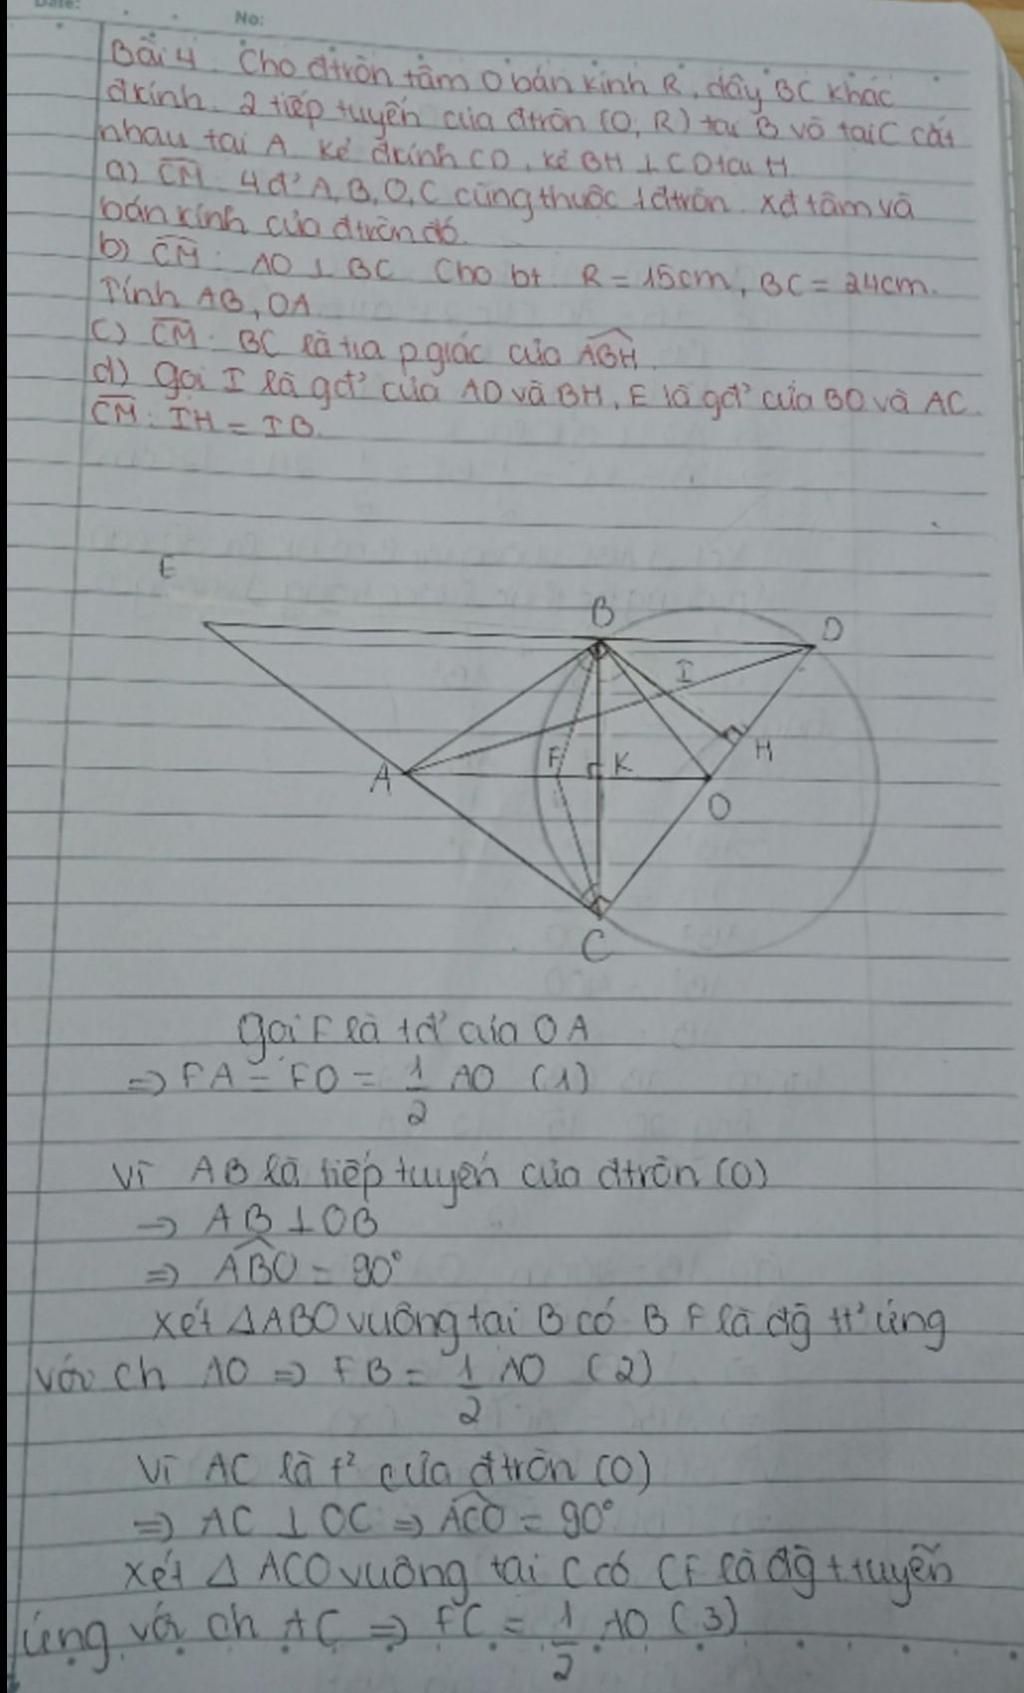 Date:
No:
Bài 4 Cho đtròn tâm O bán kính R, dây BC khác
đkính. 2 tiếp tuyến của đtròn (O, R) tại B và tại C cắt
nhau tại A. Kẻ đkính CD, kẻ BH ⊥ CD tại H
a) CM: 4 đ' A, B, O, C cùng thuộc 1 đtròn. xđ tâm và
bán kính của đtròn đó.
b) CM: AO ⊥ BC Cho bt R = 15cm, BC = 24cm.
Tính AB, OA
c) CM: BC là tia pgiác của ABH
d) gọi I là gđ' của AD và BH, E là gđ' của BD và AC.
CM: IH = IB.
E
B
D
I
A
F
K
H
O
C
gọi F là tđ' của OA
⇒ FA = FO = 1/2 AO (1)
Vì AB là tiếp tuyến của đtròn (O)
⇒ AB ⊥ OB
⇒ ABO = 90°
Xét ΔABO vuông tại B có BF là đg tt' ứng
với ch AO ⇒ FB = 1/2 AO (2)
Vì AC là t² của đtròn (O)
⇒ AC ⊥ OC ⇒ ACO = 90°
Xét Δ ACO vuông tại C có CF là đg ttuyến
ứng với ch AC ⇒ FC = 1/2 AO (3)